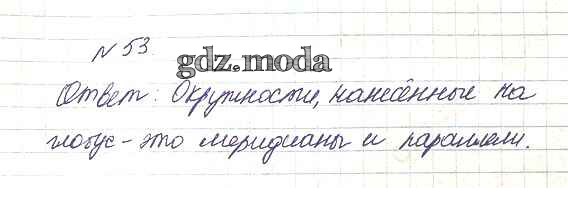 № 53.
gdz.moda
Ответ: Окружности, нанесённые на
глобус – это меридианы и параллели.